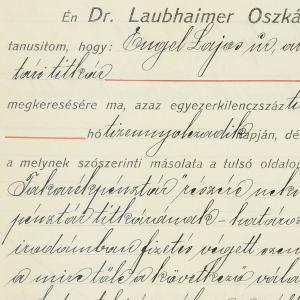 Én Dr. Laubhaimer Oszká
tanusitom, hogy: Engel Lajos úr, a
tári titkár
megkeresésére ma, azaz egyezerkilenczszáz ti
hó tizennyolczadik napján, dé
a melynek szószerinti másolata a tulsó oldalo
Takarékpénztár" részére nek
pénztár titkárának – határoz
irodámban fizetés végett szem
a mire tőle a következő vála